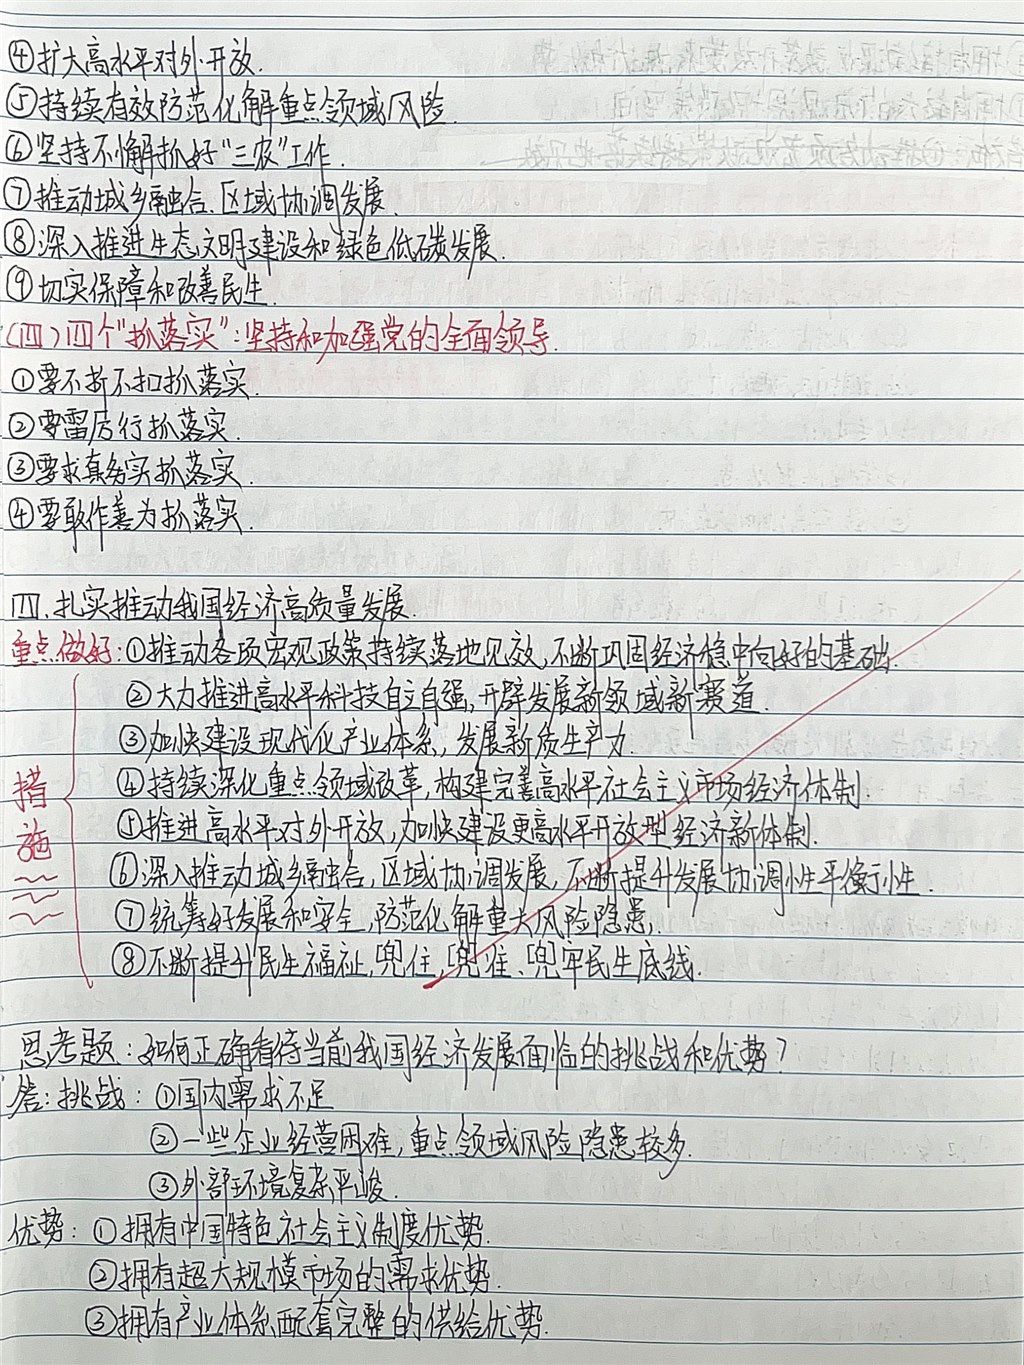 ④扩大高水平对外开放.
⑤持续有效防范化解重点领域风险.
⑥坚持不懈抓好“三农”工作.
⑦推动城乡融合、区域协调发展.
⑧深入推进生态文明建设和绿色低碳发展.
⑨切实保障和改善民生.
(四)四个“抓落实”:坚持和加强党的全面领导.
①要不折不扣抓落实.
②要雷厉行抓落实.
③要求真务实抓落实.
④要敢作善为抓落实.
四.扎实推动我国经济高质量发展.
重点做好:①推动各项宏观政策持续落地见效,不断巩固经济稳中向好的基础.
②大力推进高水平科技自主自强,开辟发展新领域新赛道.
③加快建设现代化产业体系,发展新质生产力.
措施
④持续深化重点领域改革,构建完善高水平社会主义市场经济体制.
⑤推进高水平对外开放,加快建设更高水平开放型经济新体制.
⑥深入推动城乡融合,区域协调发展,不断提升发展协调性平衡性.
⑦统筹好发展和安全,防范化解重大风险隐患,.
⑧不断提升民生福祉,兜住,兜准、兜牢民生底线.
思考题:如何正确看待当前我国经济发展面临的挑战和优势?
答:挑战:①国内需求不足
②一些企业经营困难,重点领域风险隐患较多.
③外部环境复杂严峻.
优势:①拥有中国特色社会主义制度优势.
②拥有超大规模市场的需求优势.
③拥有产业体系配套完整的供给优势.